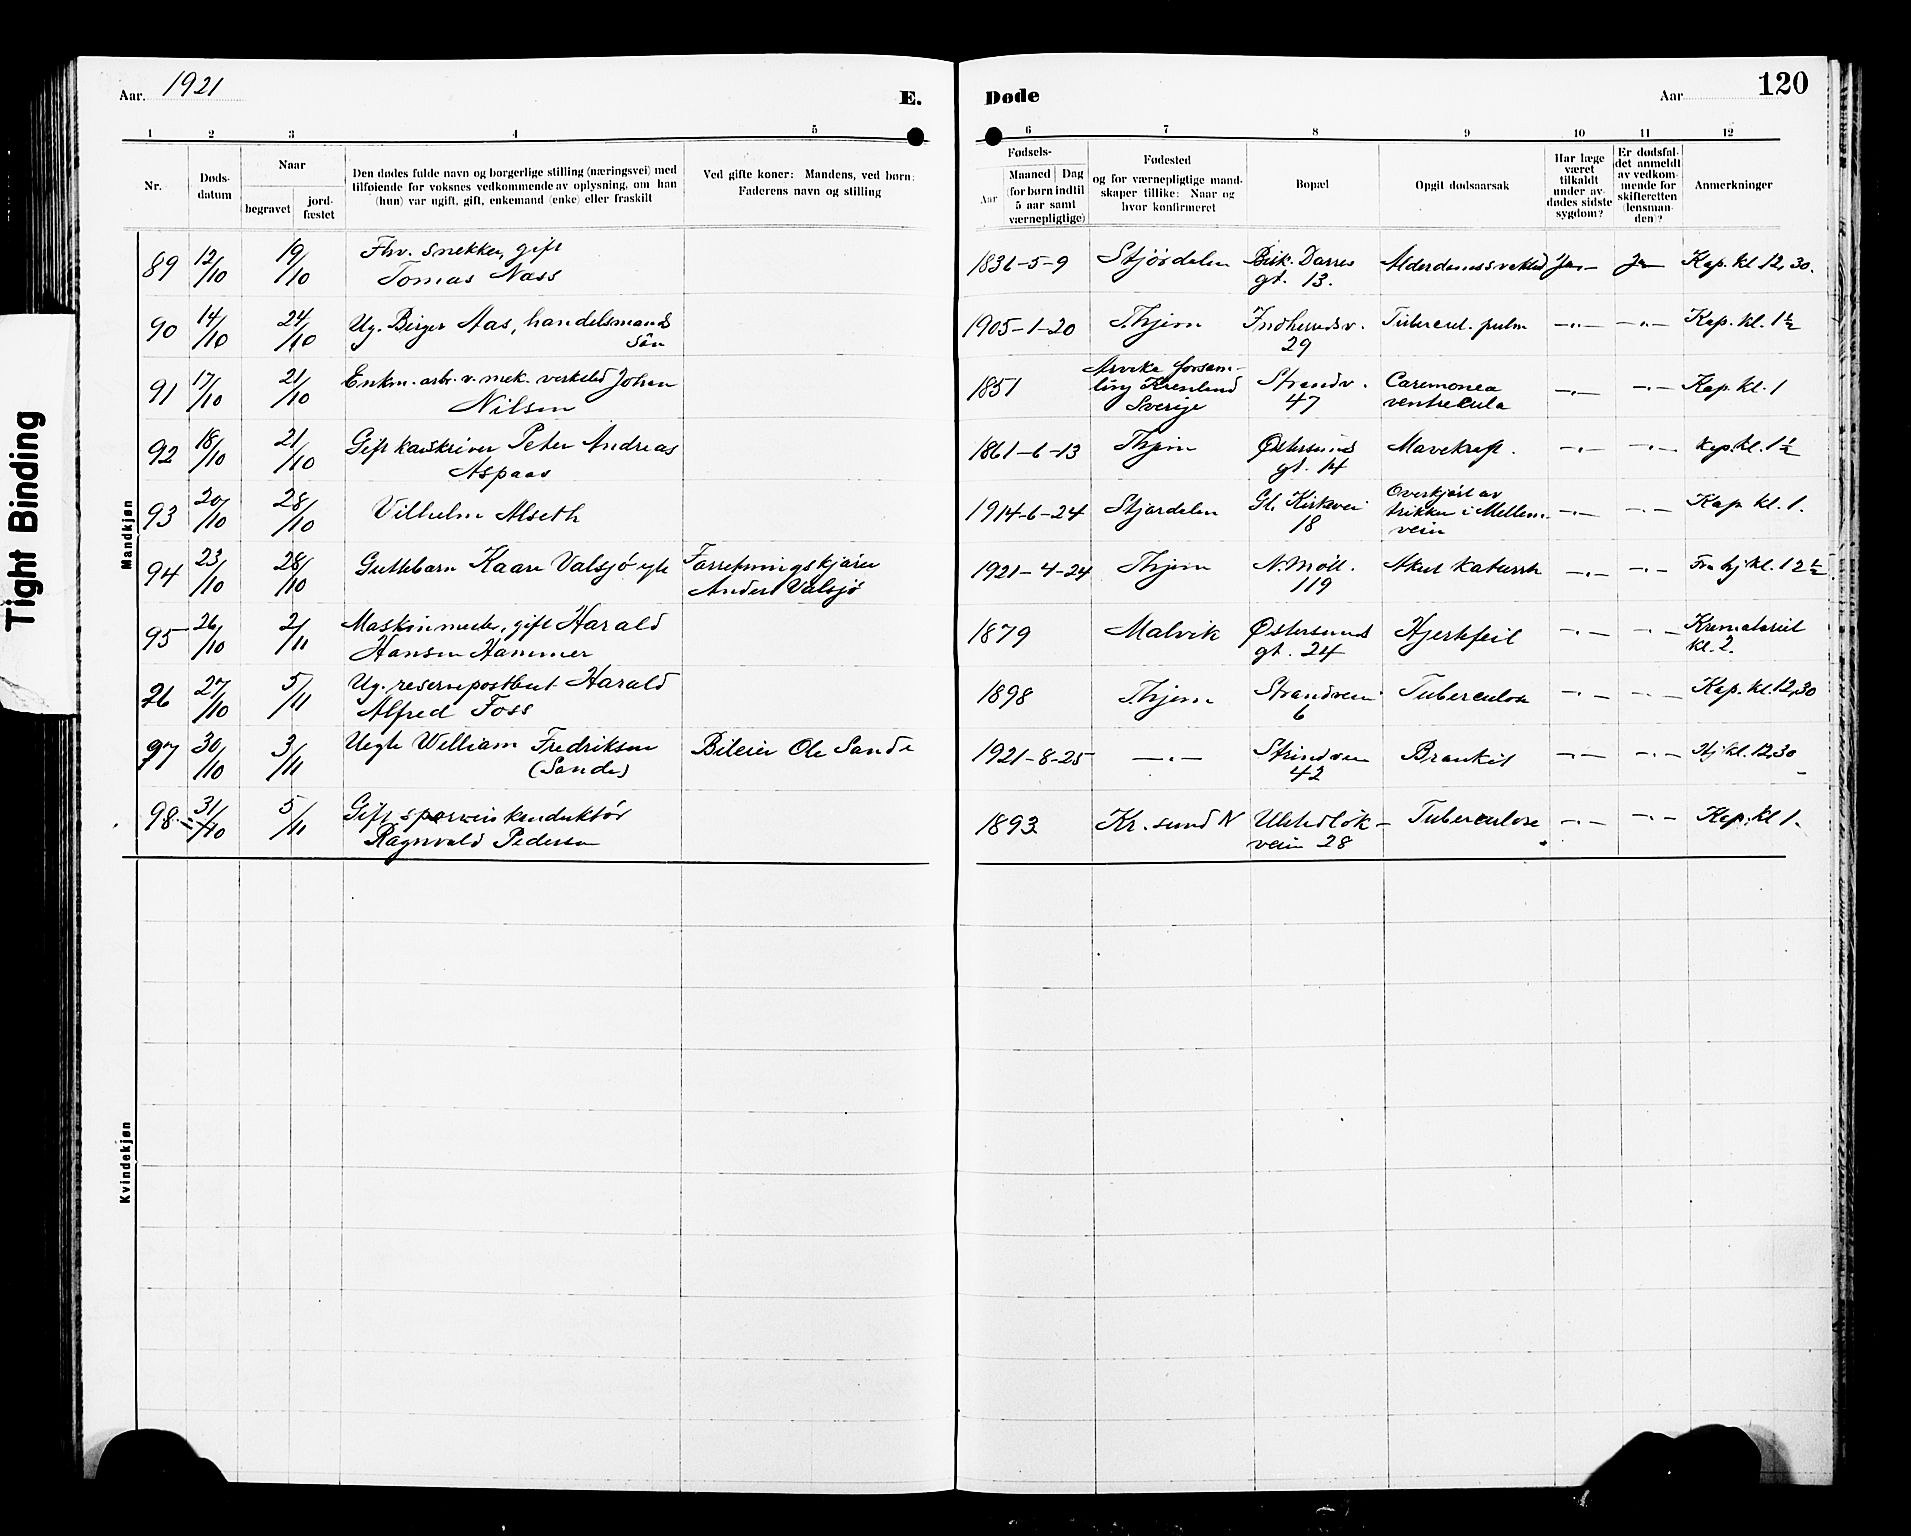 Tight Binding
Aar. 1921
E.
Døde
Aar
120
1 2 3 4 5 6 7 8 9 10 11 12
Nr.
Døds-
datum
Naar
begravet
jord-
fæstet
Den dødes fulde navn og borgerlige stilling (næringsvei) med
tilføiende for voksnes vedkommende av oplysning, om han
(hun) var ugift, gift, enkemand (enke) eller fraskilt
Ved gifte koner: Mandens, ved børn:
Faderens navn og stilling
Fødsels-
Aar
Maaned Dag
(for børn indtil
5 aar samt
værnepligtige)
Fødested
og for værnepligtige mand-
skaper tillike: Naar og
hvor konfirmeret
Bopæl
Opgit dødsaarsak
Har læge
været
tilkaldt
under av-
dødes sidste
sygdom?
Er dødsfal-
det anmeldt
av vedkom-
mende for
skifteretten
(lensman-
den)?
Anmerkninger
Mandkjøn
89 12/10 19/10 Fhv. snekker, gift
Tomas Næss
1831-5-9 Stjørdalen Bisk. Darres
gt. 13.
Alderdomssvakhed Ja Ja Kap. kl 12,30.
90 14/10 24/10 Ug. Birger Aas, handelsmands
søn
1905-1-20 Thjem Indherredsv.
29
Tubercul. pulm —"— —"— Kap. kl. 1 1/2
91 17/10 21/10 Enkm. arb. v. mek. verksted Johan
Nilsen
1851 Arvika forsam-
ling
Sverige
Strandv.
47
ventricula —"— —"— Kap. kl. 1
92 18/10 21/10 Gift Peter Andreas
Aspaas
1861-6-13 Thjem Østersunds
gt. 14
Mavekræft. —"— —"— Kap. kl. 1 1/2
93 20/10 28/10 Vilhelm Alseth
1914-6-24 Stjørdalen Gl. Kirkevei
18
Overkjørt av
trikken i Mellem-
veien
—"— —"— Kap kl. 1.
94 23/10 28/10 Guttebarn Kaare Valsjø egte Forretningskjører
Anders Valsjø
1921-4-24 Thjem N. Møll.
119
Akut katarrh —"— —"— Fra hj kl. 12 1/2
95 26/10 2/11 Maskinmester, gift Harald
Hansen Hammer
1879 Malvik Østersunds
gt. 24
Hjertefeil —"— —"— Krematoriet
kl. 2.
26 27/10 5/11 Ug. reservepostbud Harald
Alfred Foss
1898 Thjem Strandveien
6
Tuberculose —"— —"— Kap. kl. 12,30
97 30/10 3/11 Uegte William Fredriksen
(Sande)
Bileier Ole Sande
1921-8-25 —"— Strindveien
42
Bronkit —"— —"— Hj kl. 12,30
98 31/10 5/11 Gift sporveiskonduktør
Ragnvald Pedersen
1893 Kr. sund N
veien 28
Tuberculose —"— —"— Kap. kl 1.
Kvindekjøn